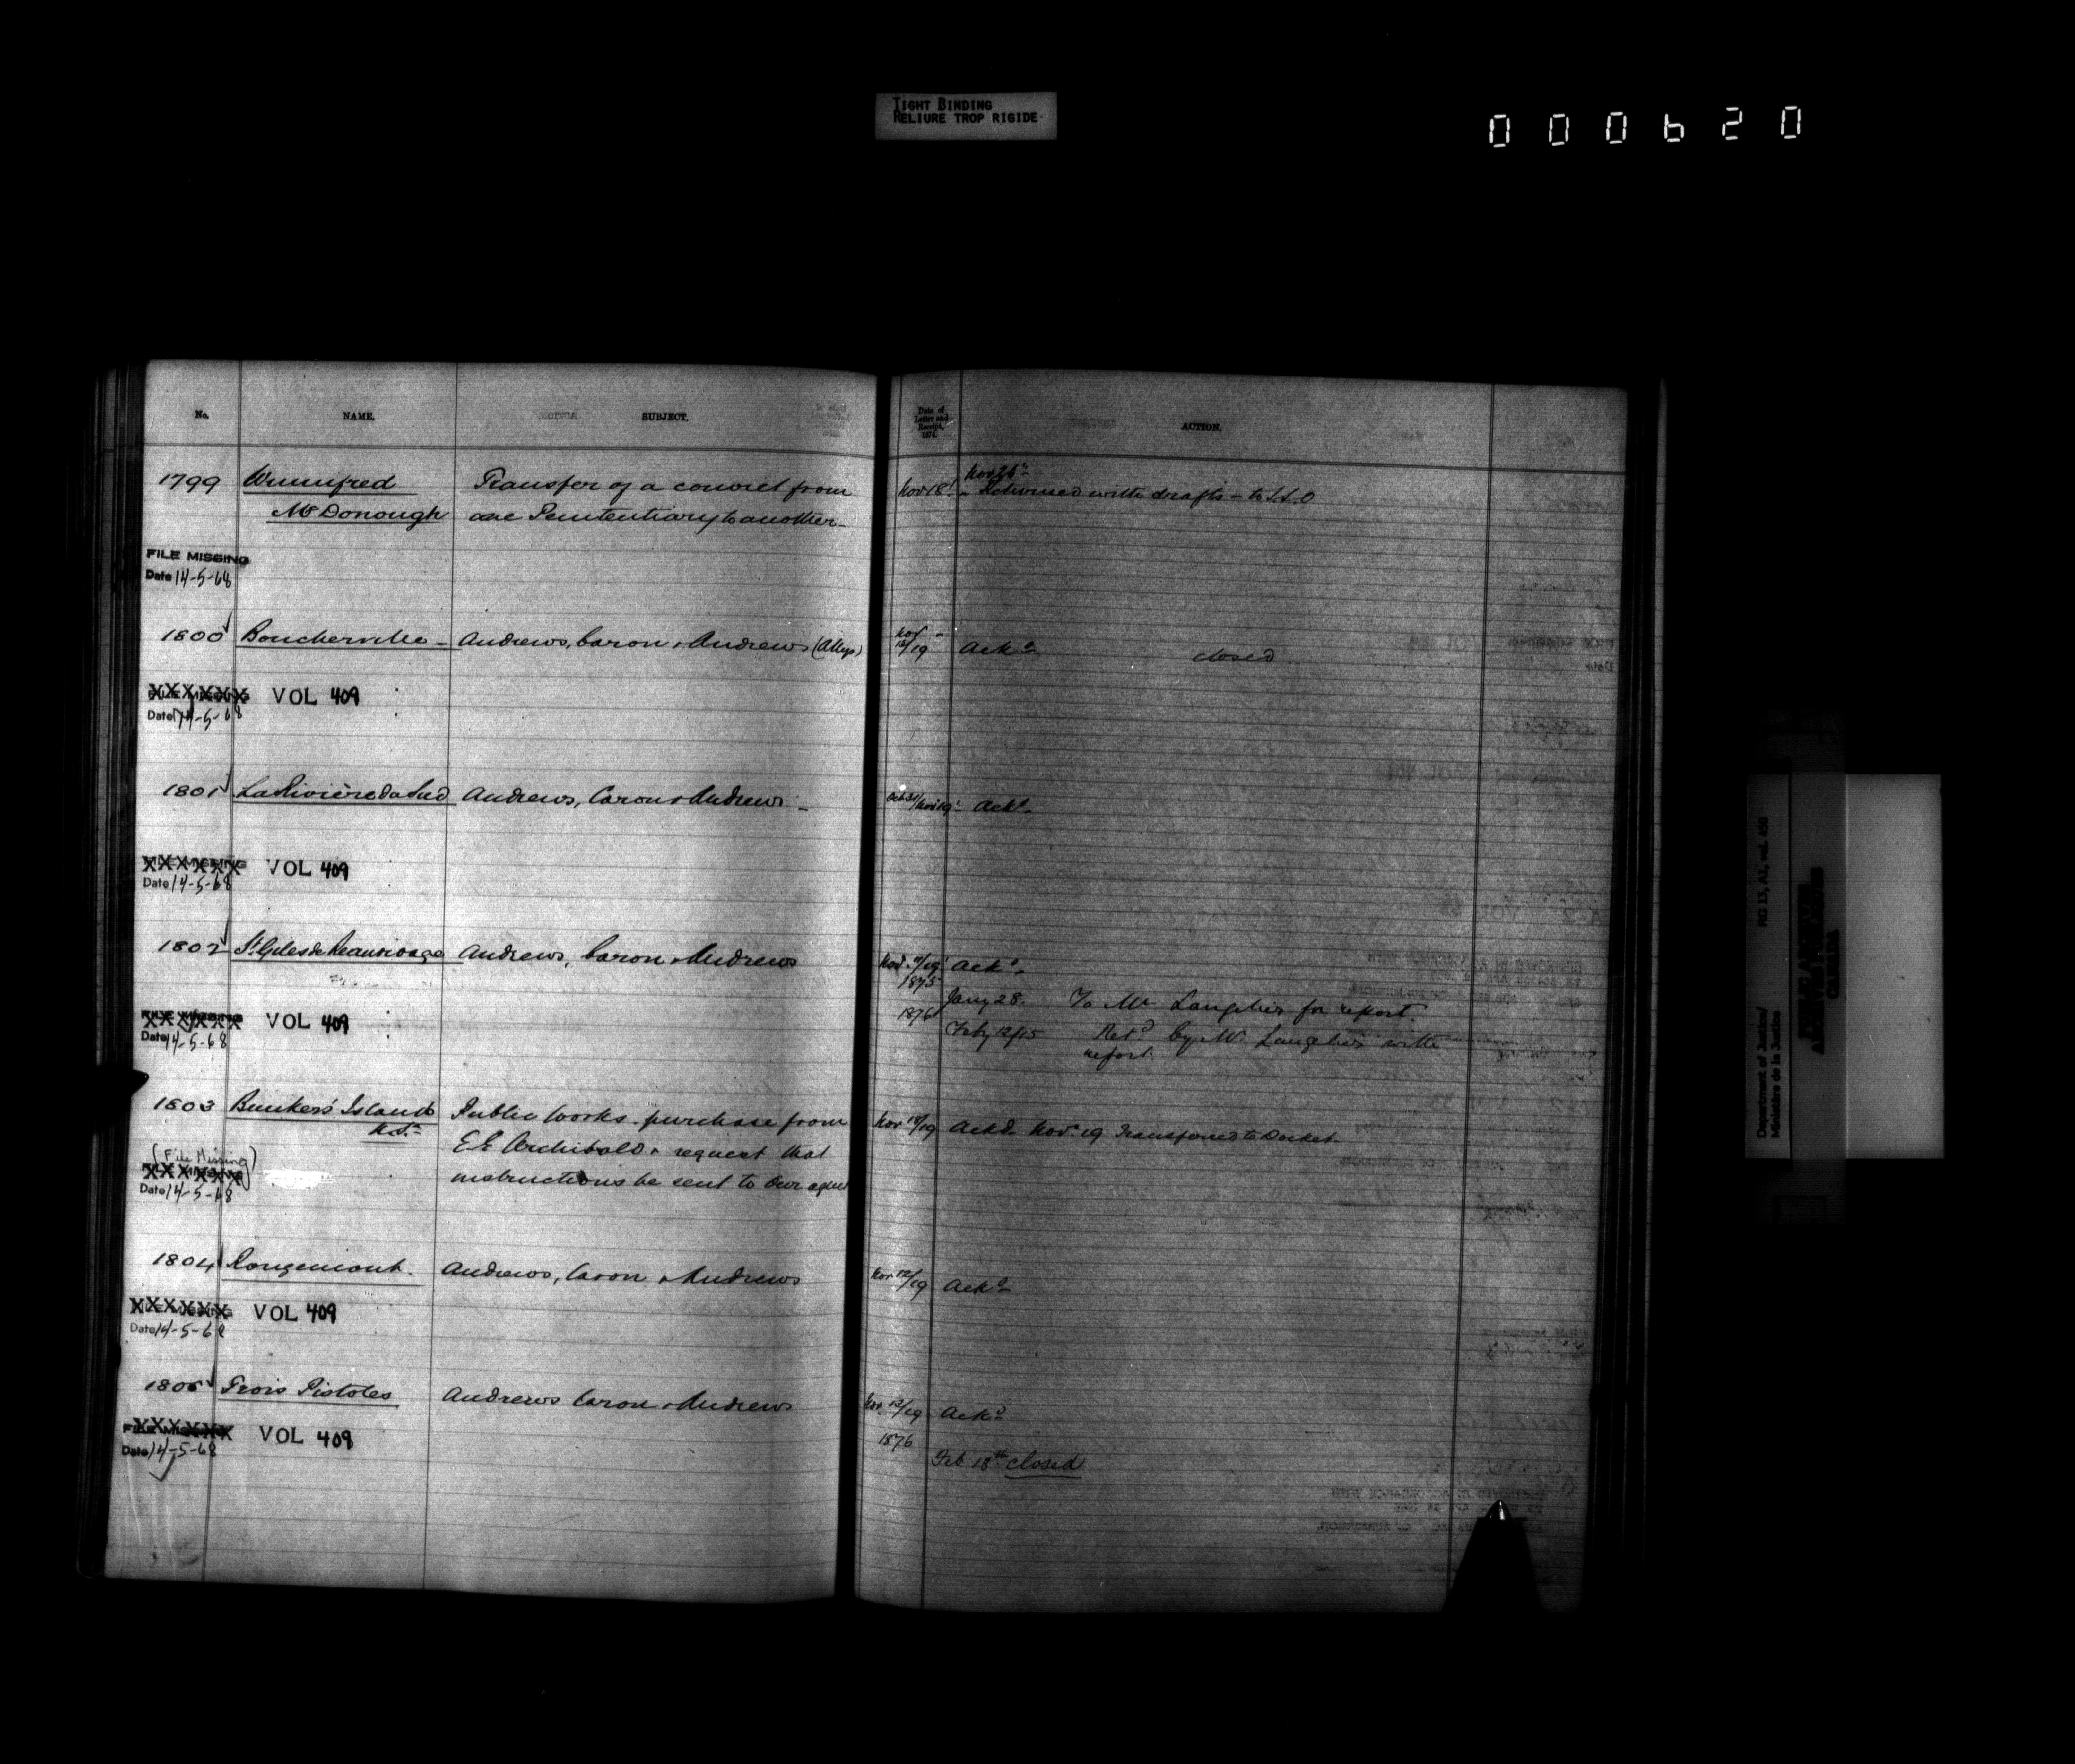 TIGHT BINDING
RELIURE TROP RIGIDE
000620
No. NAME. SUBJECT. Date of Letter and Receipt, 1874. ACTION.
Nov 26th
1799 Winnifred Transfer of a convict from Nov 18 Returned with drafts – to S.S.O
McDonough one Penitentiary to another –
FILE MISSING
Date 14-5-68
1800 Boucherville – Andrews, Caron & Andrews (Alleyn) Nov 13/19 Ackd closed
FILE MISSING VOL 409
Date 14-5-68
1801 La Rivière du Sud Andrews, Caron & Andrews – Oct 31/Nov 19 Ackd
FILE MISSING VOL 409
Date 14-5-68
1802 St. Giles de Beaurivage Andrews, Caron & Andrews Nov. /19 Ackd
1875
Jany 28. To Mr Langelier for report.
FILE MISSING VOL 409 1876
Date 14-5-68 Feby 12/15 Retd by Mr Langelier with
report.
1803 Bunker's Island Public Works. purchase from Nov 18/19 Ackd Nov. 19 Transferred to Docket.
N.S. E E Archibald & request that
(File Missing) instructions be sent to our agent
FILE MISSING
Date 14-5-68
1804 Rougemont. Andrews, Caron & Andrews Nov 12/19 Ackd
FILE MISSING VOL 409
Date 14-5-68
1805 Trois Pistoles Andrews Caron & Andrews Nov. 12/19 Ackd
FILE MISSING VOL 409 1876
Date 14-5-68 Feb 18th closed
Department of Justice/ RG 13, A1, vol. 430
Ministère de la Justice
PUBLIC ARCHIVES
ARCHIVES PUBLIQUES
CANADA